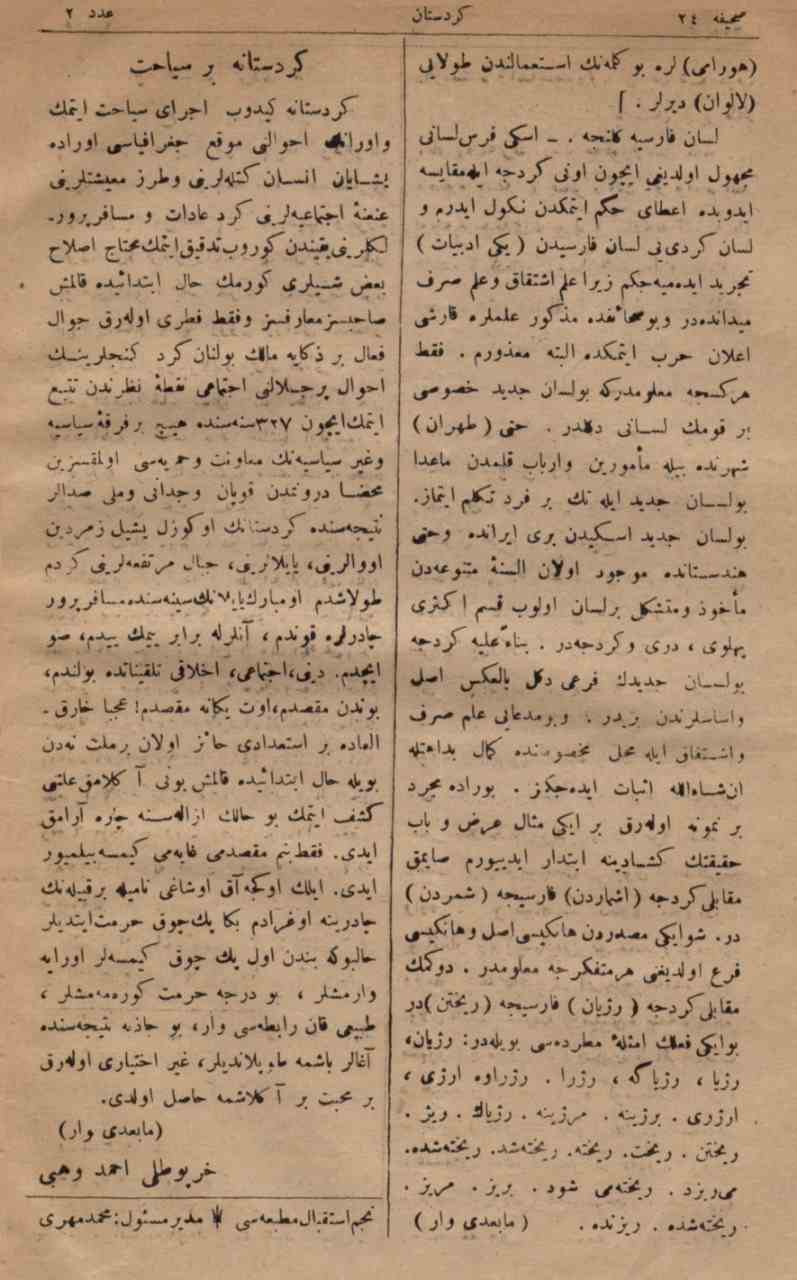 صحیفه ٢٤
كردستان
عدد ٢
(هورامی) لره بو كلمه‌نك استعمالندن طولایی
(لالوان) دیرلر . ]
لسان فارسیه كلنجه . ــ اسكی فرس لسانی
مجهول اولدیغی ایچون اونی كردجه ایله مقایسه
ایدوبده اعطای حكم ایتمكدن نكول ایدرم و
لسان كردی‌یی لسان فارسیدن ( یكی ادبیات )
تجرید ایده‌میه‌جكم زیرا علم اشتقاق وعلم صرف
میدانده‌در وبو صحائفده مذكور علملره قارشی
اعلان حرب ایتمكده البته معذورم . فقط
هركسجه معلومدركه بولسان جدید خصوصی
بر قومك لسانی دكلدر . حتی ( طهران )
شهرنده بیله مأمورین وارباب قلمدن ماعدا
بولسان جدید ایله تك بر فرد تكلم ایتماز.
بولسان جدید اسكیدن بری ایرانده وحتی
هندستانده موجود اولان السنهٔ متنوعه‌دن
مأخوذ ومتشكل برلسان اولوب قسم اكثری
پهلوی ، دری وكردجه‌در . بناءً علیه كردجه
بولسان جدیدك فرعی دكل بالعكس اصل
واساسلرندن بریدر . وبومدعایی علم صرف
واشتقاق ایله محل مخصوصنده كمال بداهتله
ان‌شاءالله اثبات ایده‌جكز . بوراده مجرد
بر نمونه اوله‌رق بر ایكی مثال عرض و باب
حقیقتك كشادینه ابتدار ایدییورم صایمق
مقابلی كردجه (اشماردن) فارسیجه ( شمردن )
در. شوایكی مصدردن هانكیسی اصل وهانكیسی
فرع اولدیغی هرمتفكرجه معلومدر . دوكمك
مقابلی كردجه ( رژیان ) فارسیجه ( ریختن )در
بوایكی فعلك امثلهٔ مطرده‌سی بویله‌در: رژیان،
رژیا ، رژیاگه ، رژرا . رزراوه ارژی ،
ارژری . برژینه . مرژینه . رژیاك . ویژ .
ریختن . ریخت. ریخته. ریخته‌شد. ریخته‌شده.
می‌ریزد . ریخته‌می شود . بریز . مریز .
ریخته‌شده . ریزنده . ( مابعدی وار )
كردستانه بر سیاحت
كردستانه كیدوب اجرای سیاحت ایتمك
واورانك احوالی موقع جغرافیاسی اوراده
یشایان انسان كتله‌لرینی وطرز معیشتلرینی
عنعنهٔ اجتماعیه‌لرینی كرد عادات و مسافرپرور-
لكلرینی یقیندن كوروب تدقیق ایتمك محتاج اصلاح
بعض شیلری كورمك حال ابتدائیده قالمش
صاحبسز معارفسز وفقط فطری اوله‌رق جوال
فعال بر ذكایه مالك بولنان كرد كنجلرینك
احوال پرجلالنی اجتماعی نقطهٔ نظرندن تتبع
ایتمك ایچون ٣٢٧ سنه‌سنده هیچ بر فرقهٔ سیاسیه
وغیر سیاسیه‌نك معاونت وحمیه‌سی اولمقسزین
محضا درونمدن قوپان وجدانی وملی صدالر
نتیجه‌سنده كردستانك اوكوزل یشیل زمردین
اووالرینی، یایلالرینی، جبال مرتفعه‌لرینی كزدم
طولاشدم اومبارك یایلانك سینه‌سنده مسافرپرور
چادرلره قوندم ، آنلرله برابر ییمك ییدم، صو
ایچدم. دینی، اجتماعی، اخلاقی تلقیناتده بولندم،
بوندن مقصدم، اوت یكانه مقصدم! عجبا خارق-
العاده بر استعدادی حائز اولان برملت نه‌دن
بویله حال ابتدائیده قالمش بونی آكلامق علتنی
كشف ایتمك بو حالك ازاله‌سنه چاره آرامق
ایدی. فقط بنم مقصدمی غایه‌می كیمسه بیلمیور
ایدی. ایلك اوكجه آق اوشاغی نامیله برقبیله‌نك
چادرینه اوغرادم بكا پك چوق حرمت ایتدیلر
حالبوكه بندن اول پك چوق كیمسه‌لر اورایه
وارمشلر ، بو درجه حرمت كورمه‌مشلر ،
طبیعی قان رابطه‌سی وار، بو جاذبه نتیجه‌سنده
آغالر باشمه طوپلاندیلر، غیر اختیاری اوله‌رق
بر محبت بر آكلاشمه حاصل اولدی.
(مابعدی وار)
خرپوطلی احمد وهبی
نجم استقبال مطبعه‌سی
مدیر مسئول: محمد مهری